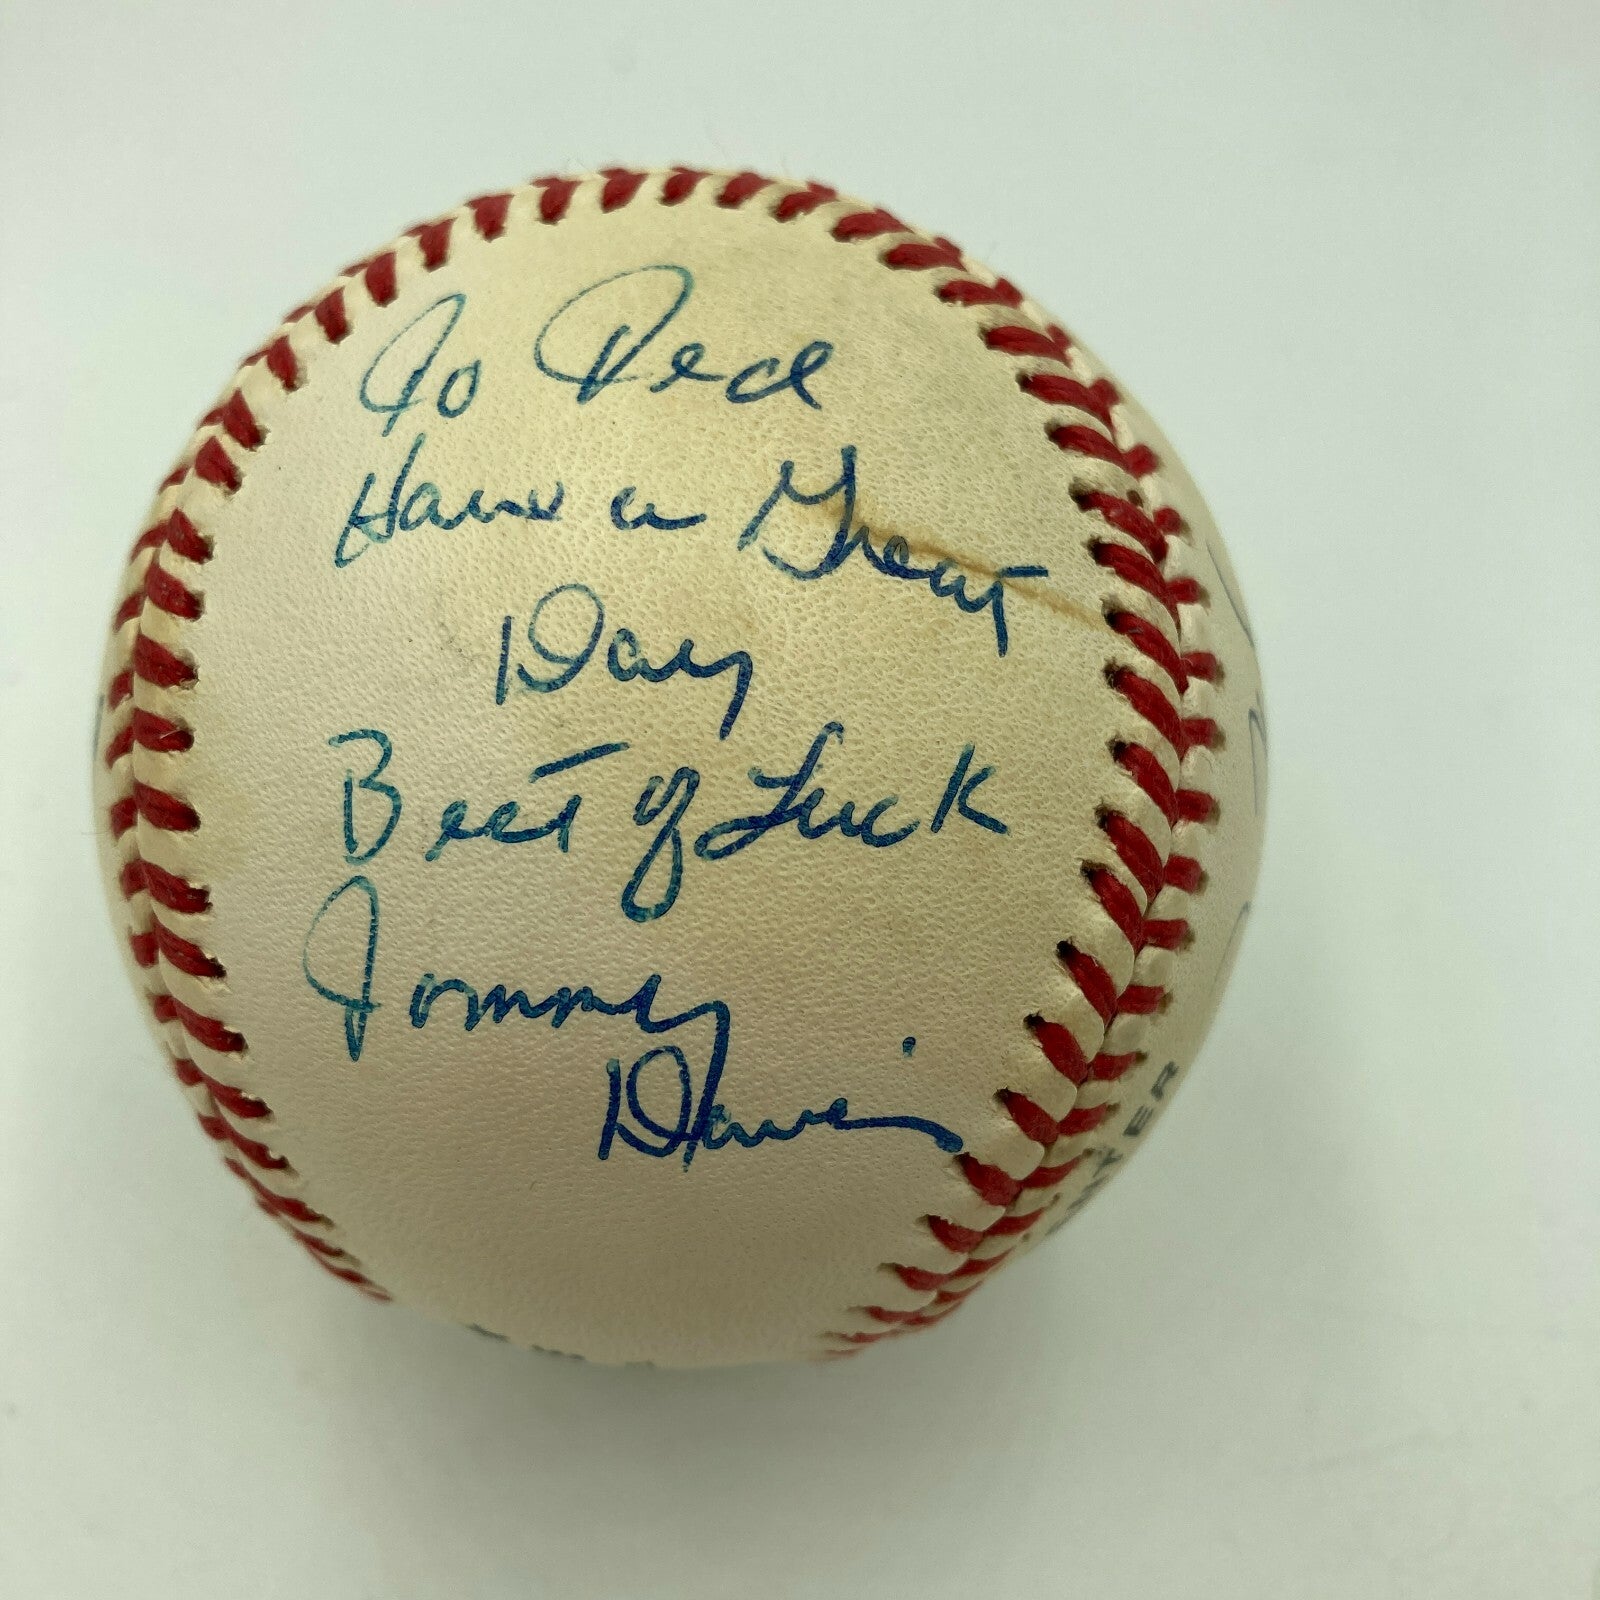 To Red
Have a Great
Day
Best of Luck
Tommy
Davis